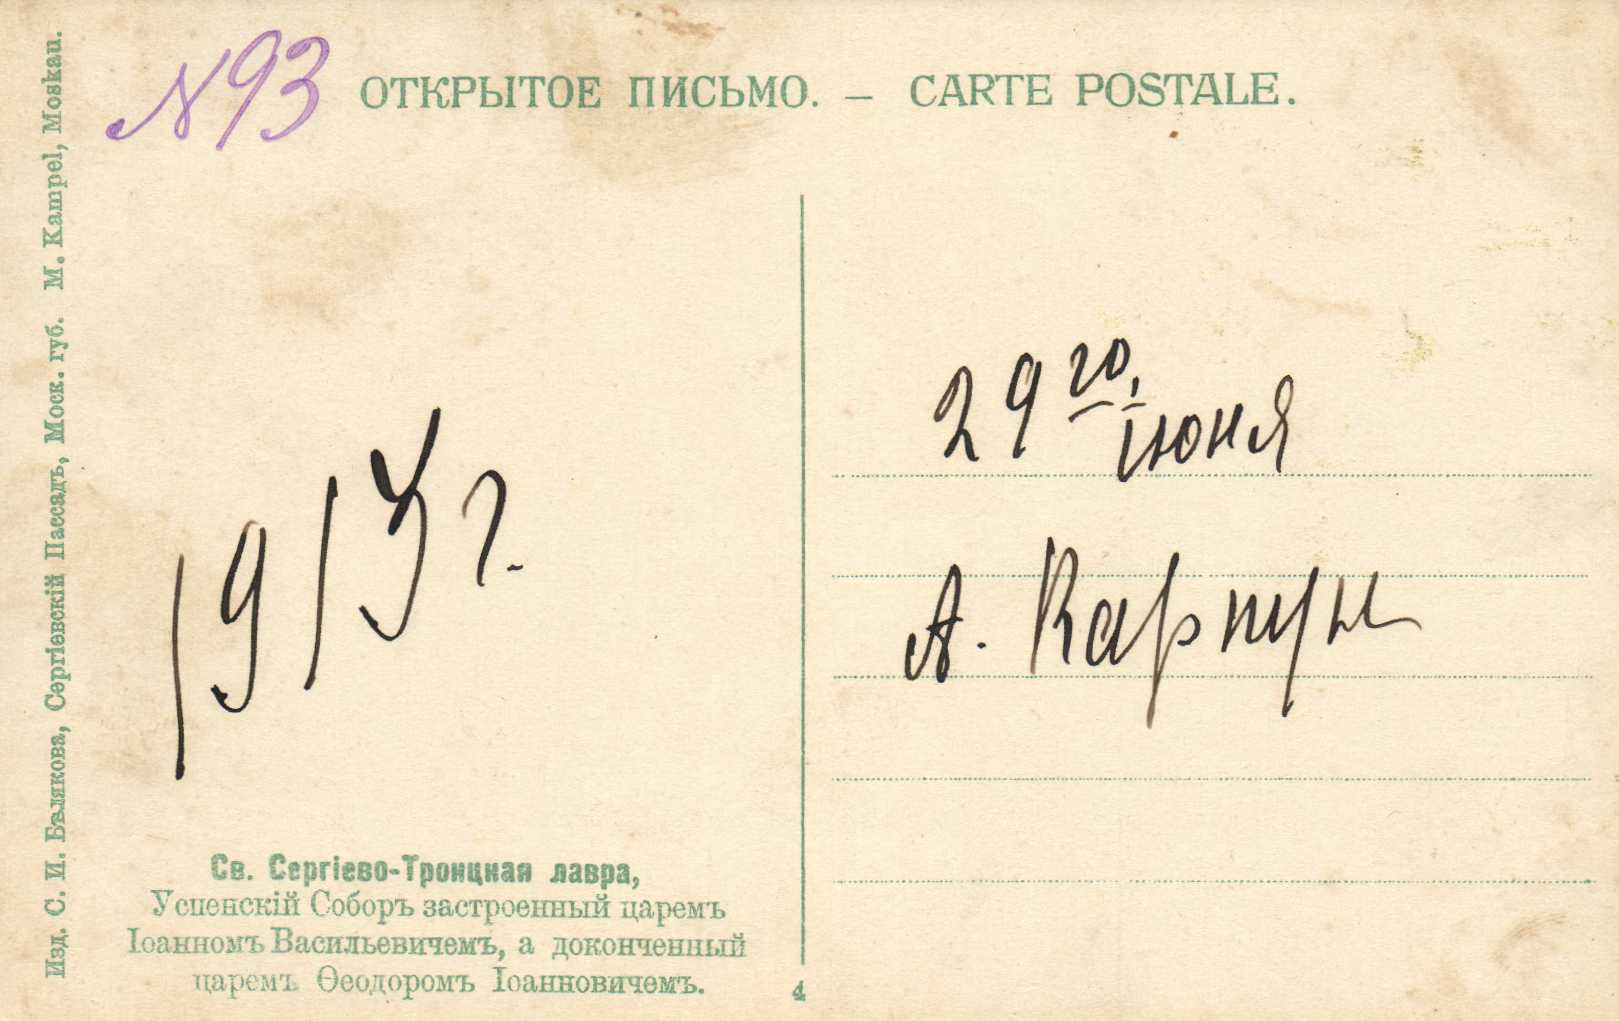 N 93
ОТКРЫТОЕ ПИСЬМО. — CARTE POSTALE.
Изд. С. И. Бѣлякова, Сергіевскій Пассадъ, Моск. губ. М. Kampel, Moskau.
1913 г.
29го іюня
А. Карпун
Св. Сергіево-Троицкая лавра,
Успенскій Соборъ застроенный царемъ
Іоанномъ Васильевичемъ, а доконченный
царемъ Ѳеодоромъ Іоанновичемъ.
4